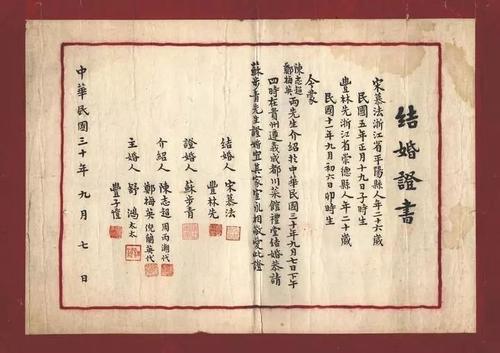 結婚證書
宋慕法浙江省平陽縣人年二十六歲
民國五年正月十九日子時生
豐林先浙江省崇德縣人年二十歲
民國十一年九月初六日卯時生
今蒙
陳志超
鄭梅英
兩先生介紹於中華民國三十年九月七日下午
四時在貴州遵義成都川菜館禮堂結婚恭請
蘇步青先生證婚宜其家室永相敬愛此證
結婚人 宋慕法
豐林先
證婚人 蘇步青
介紹人 陳志超 周丙潮代
鄭梅英 倪蘭英代
主婚人 舒鴻 太太
豐子愷
中華民國三十年九月七日